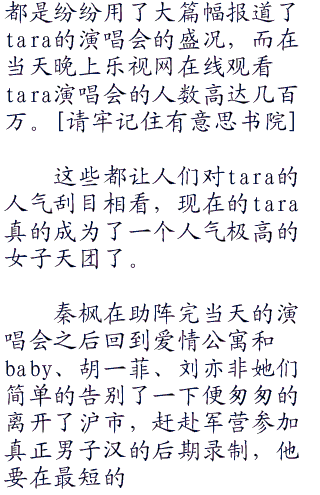 都是纷纷用了大篇幅报道了
tara的演唱会的盛况，而在
当天晚上乐视网在线观看
tara演唱会的人数高达几百
万。[请牢记住有意思书院]
这些都让人们对tara的
人气刮目相看，现在的tara
真的成为了一个人气极高的
女子天团了。
秦枫在助阵完当天的演
唱会之后回到爱情公寓和
baby、胡一菲、刘亦非她们
简单的告别了一下便匆匆的
离开了沪市，赶赴军营参加
真正男子汉的后期录制，他
要在最短的